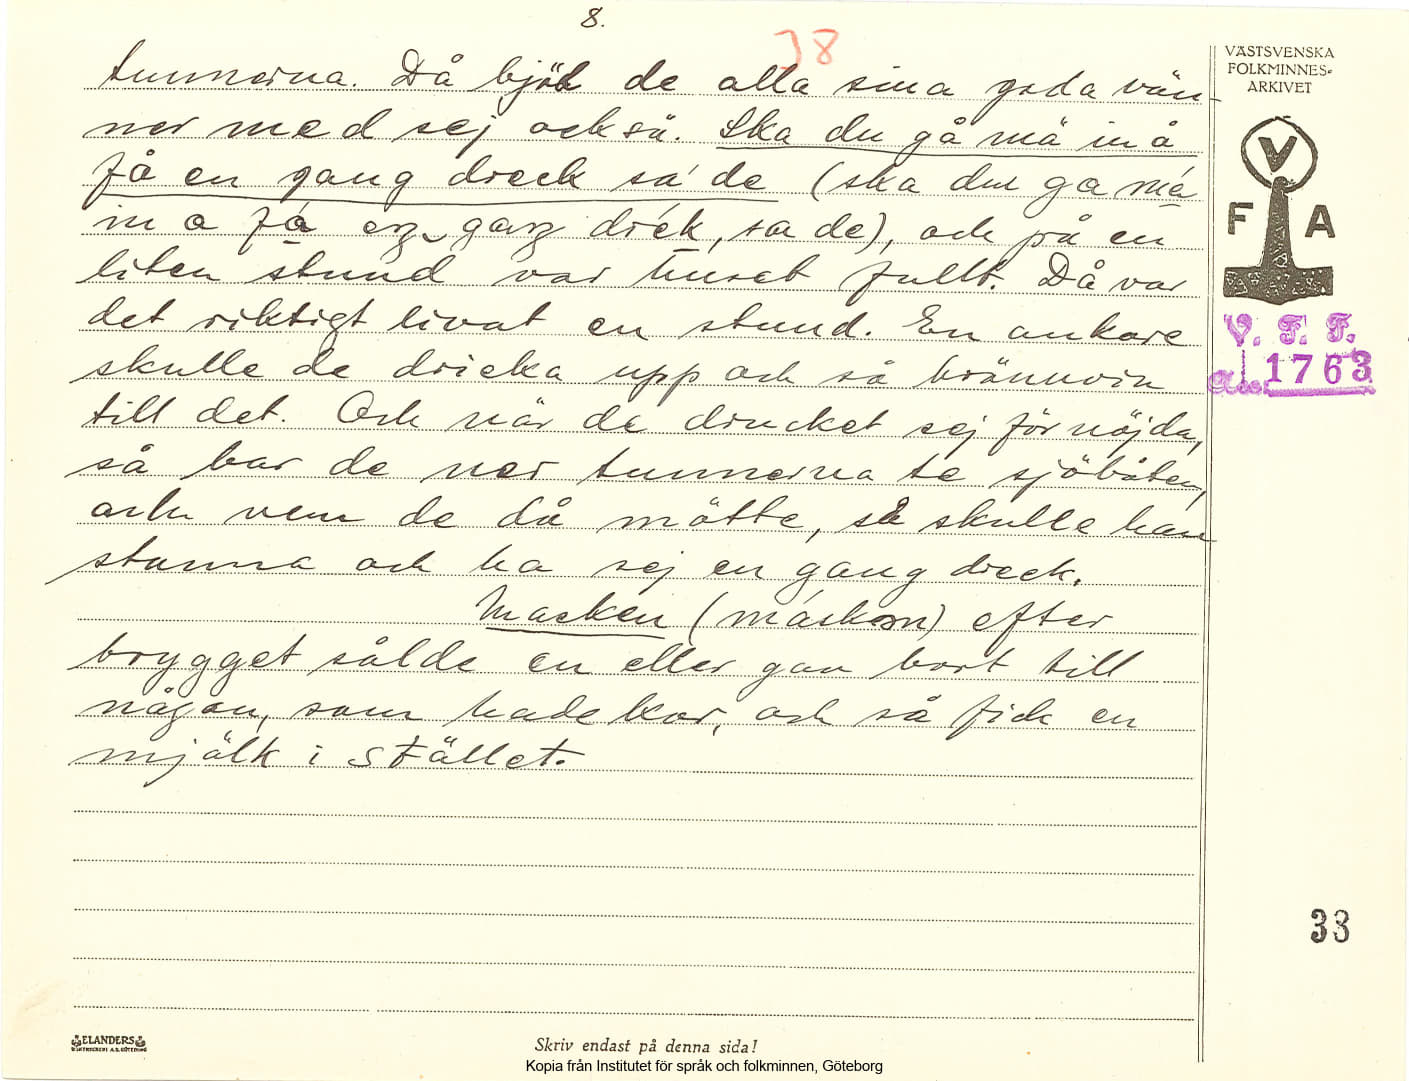 8.
38
tunnerna. Då bjöd de alla sina goda vän-
ner med sej också. Ska du gå mä in å
få en gang dreck sa' de (ska du ga má
in a få eŋ gaŋ drék, sa de), och på en
liten stund var huset fullt. Då var
det riktigt livat en stund. En ankare
skulle de dricka upp och så brännvin
till det. Och när de drucket sej för nöjda,
så bar de ner tunnerna te sjöbåten,
och vem de då mötte, så skulle han
stanna och ha sej en gang dreck.
Masken (máskən) efter
brygget sålde en eller gav bort till
någon, som hade kor, och så fick en
mjölk i stället.
VÄSTSVENSKA
FOLKMINNES-
ARKIVET
V
F A
V. F. F.
Acc. 1763
33
ELANDERS
Skriv endast på denna sida!
Kopia från Institutet för språk och folkminnen, Göteborg